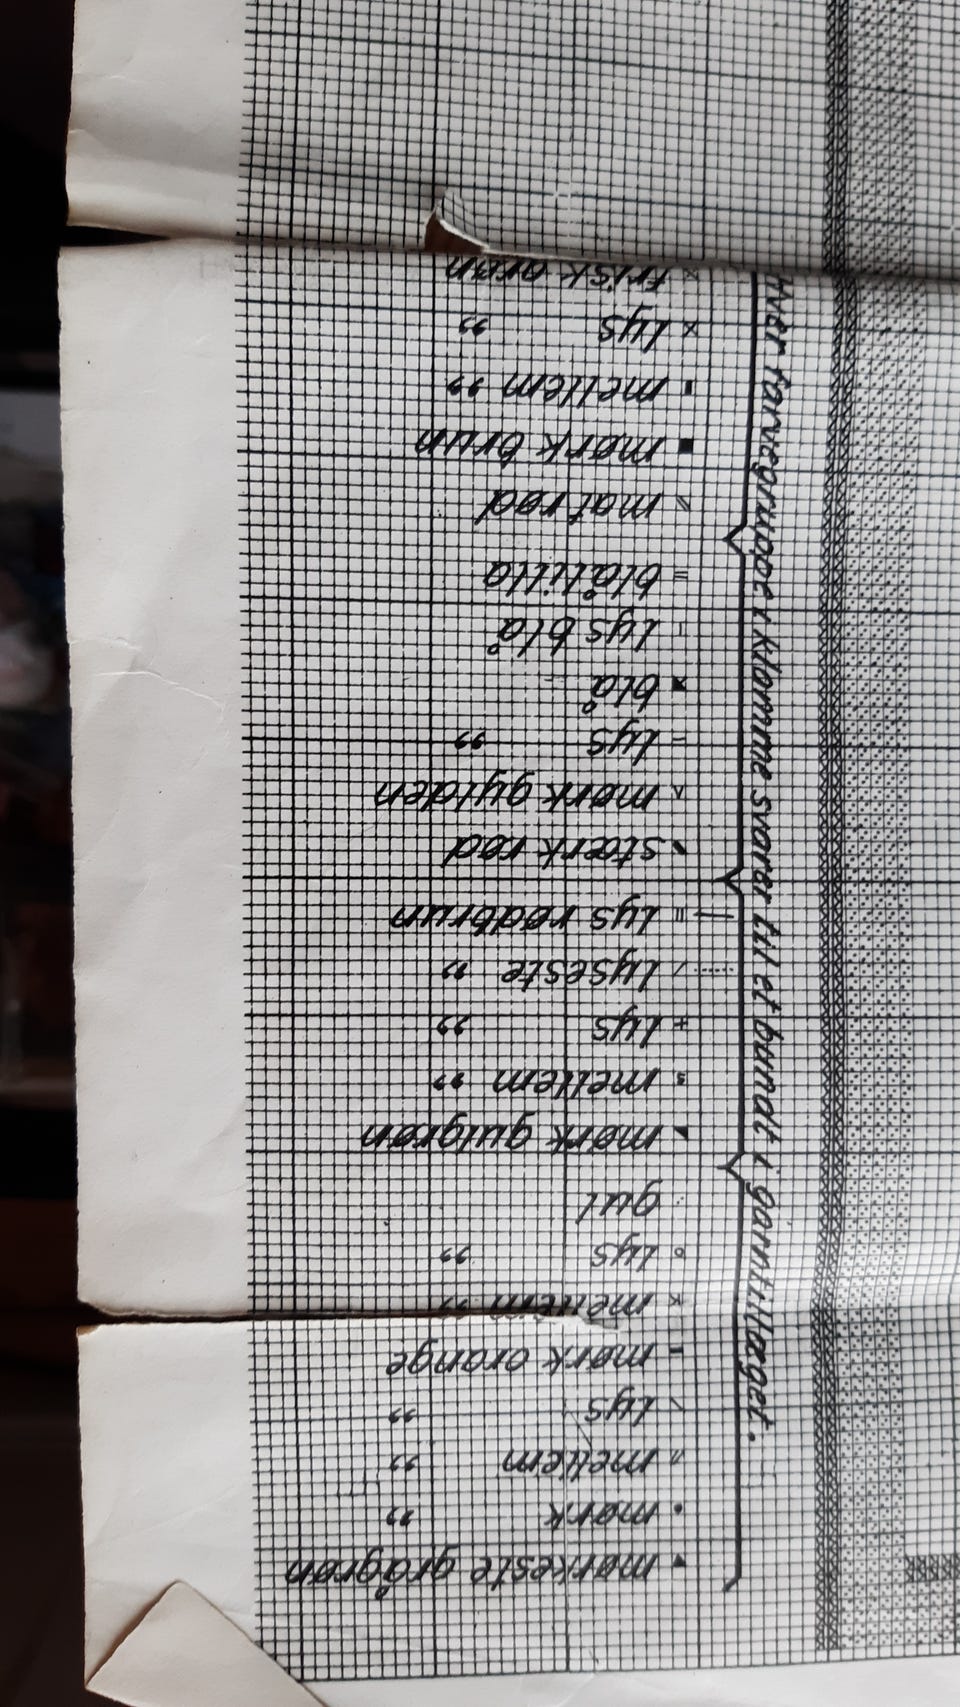 mørkeste grågrøn
mørk ”
mellem ”
lys ”
mørk orange
mellem ”
lys ”
gul
mørk gulgrøn
mellem ”
lys ”
lyseste ”
lys rødbrun
stærk rød
mørk gylden
lys ”
blå
lys blå
blålilla
mat rød
mørk brun
mellem ”
lys ”
frisk grøn
Hver farvegruppe i klamme svarer til et bundt i garntillæget.